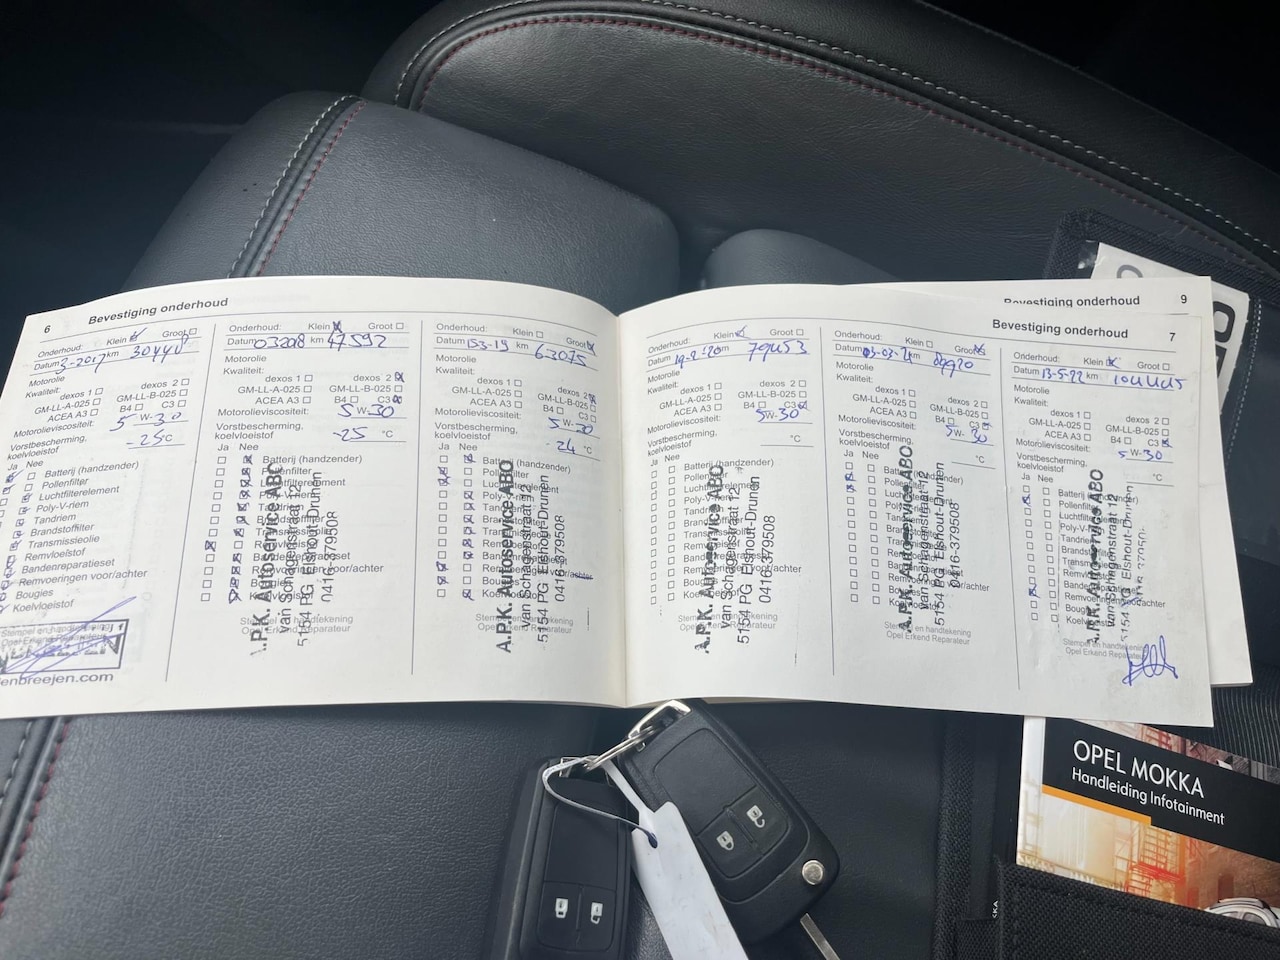 6 Bevestiging onderhoud
Onderhoud: Klein Groot
Datum 3-2017 km
Motorolie
Kwaliteit:
dexos 1 dexos 2
GM-LL-A-025 GM-LL-B-025
ACEA A3 B4 C3
Motorolieviscositeit: 5 W-30
Vorstbescherming,
koelvloeistof -25 °C
Ja Nee
Batterij (handzender)
Pollenfilter
Luchtfilterelement
Poly-V-riem
Tandriem
Brandstoffilter
Transmissieolie
Remvloeistof
Bandenreparatieset
Remvoeringen voor/achter
Bougies
Koelvloeistof
Stempel en handtekening
Opel Erkend Reparateur
enbreejen.com
Onderhoud: Klein Groot
Datum 03 2018 km 47592
Motorolie
Kwaliteit:
dexos 1 dexos 2
GM-LL-A-025 GM-LL-B-025
ACEA A3 B4 C3
Motorolieviscositeit: 5 W-30
Vorstbescherming,
koelvloeistof -25 °C
Ja Nee
Batterij (handzender)
Pollenfilter
Luchtfilterelement
voor/achter
A.P.K. Autoservice ABO
van Schagenstraat 12
5154 PG Elshout-Drunen
0416-379508
Stempel en handtekening
Opel Erkend Reparateur
Onderhoud: Klein Groot
Datum 15-3-19 km 63075
Motorolie
Kwaliteit:
dexos 1 dexos 2
GM-LL-A-025 GM-LL-B-025
ACEA A3 B4 C3
Motorolieviscositeit: 5 W-30
Vorstbescherming,
koelvloeistof -24 °C
Ja Nee
Batterij (handzender)
Pollenfilter
voor/achter
A.P.K. Autoservice ABO
van Schagenstraat 12
5154 PG Elshout-Drunen
0416-379508
Stempel en handtekening
Opel Erkend Reparateur
Bevestiging onderhoud 9
Bevestiging onderhoud 7
Onderhoud: Klein Groot
Datum 19-2-'20 km 79453
Motorolie
Kwaliteit:
dexos 1 dexos 2
GM-LL-A-025 GM-LL-B-025
ACEA A3 B4 C3
Motorolieviscositeit: 5W-30
Vorstbescherming,
koelvloeistof °C
Ja Nee
Batterij (handzender)
Pollenfilter
Luchtfilterelement
Poly-V-riem
voor/achter
A.P.K. Autoservice ABO
van Schagenstraat 12
5154 PG Elshout-Drunen
0416-379508
Stempel en handtekening
Opel Erkend Reparateur
Onderhoud: Klein Groot
Datum 03-03-21 km 89920
Motorolie
Kwaliteit:
dexos 1 dexos 2
GM-LL-A-025 GM-LL-B-025
ACEA A3 B4 C3
Motorolieviscositeit: 5W-30
Vorstbescherming,
koelvloeistof °C
Ja Nee
Batterij (handzender)
Pollenfilter
voor/achter
A.P.K. Autoservice ABO
van Schagenstraat 12
5154 PG Elshout-Drunen
0416-379508
Stempel en handtekening
Opel Erkend Reparateur
Onderhoud: Klein Groot
Datum 13-5-22 km 104445
Motorolie
Kwaliteit:
dexos 1 dexos 2
GM-LL-A-025 GM-LL-B-025
ACEA A3 B4 C3
Motorolieviscositeit: 5 W-30
Vorstbescherming,
koelvloeistof °C
Ja Nee
Batterij (handzender)
Pollenfilter
Remvoeringen voor/achter
A.P.K. Autoservice ABO
van Schagenstraat 12
5154 PG Elshout-Drunen
Stempel en handtekening
Opel Erkend Reparateur
OPEL MOKKA
Handleiding Infotainment